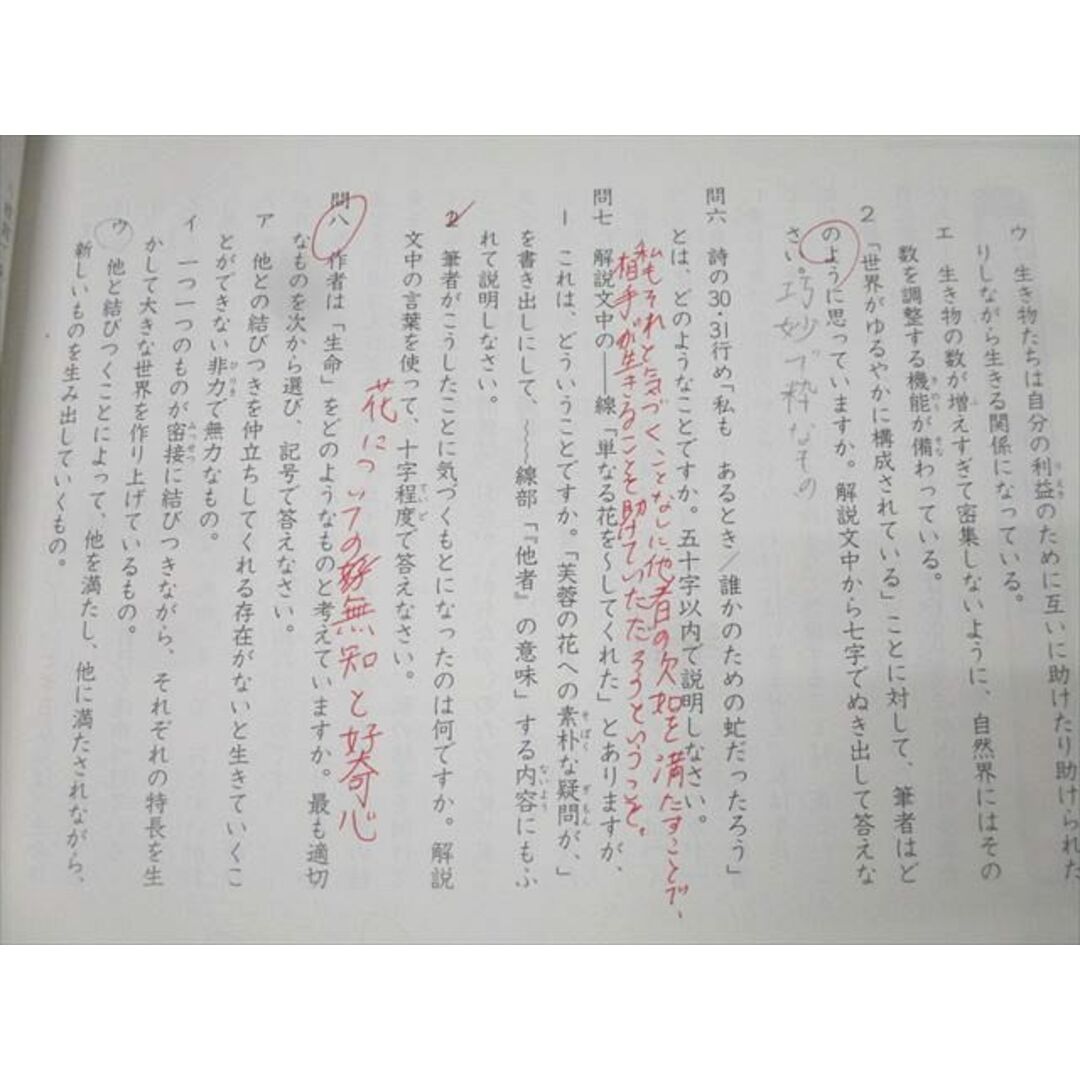 ウ 生き物たちは自分の利益のために互いに助けたり助けられた
りしながら生きる関係になっている。
エ 生き物の数が増えすぎて密集しないように、自然界にはその
数を調整する機能が備わっている。
2 「世界がゆるやかに構成されている」ことに対して、筆者はど
のように思っていますか。解説文中から七字でぬき出して答えな
さい。
巧妙で粋なもの
問六 詩の30・31行め「私も あるとき/誰かのための虻だったろう」
とは、どのようなことですか。五十字以内で説明しなさい。
私もそれと気づくことなしに他者の欠如を満たすことで、
相手が生きることを助けていただろうということ。
問七 解説文中の――線「単なる花を〜してくれた」とありますが、
1 これは、どういうことですか。「芙蓉の花への素朴な疑問が、」
を書き出しにして、〜〜〜線部「『他者』の意味」する内容にもふ
れて説明しなさい。
2 筆者がこうしたことに気づくもとになったのは何ですか。解説
文中の言葉を使って、十字程度で答えなさい。
花についての無知と好奇心
問八 作者は「生命」をどのようなものと考えていますか。最も適切
なものを次から選び、記号で答えなさい。
ア 他との結びつきを仲立ちしてくれる存在がないと生きていくこ
とができない非力で無力なもの。
イ 一つ一つのものが密接に結びつきながら、それぞれの特長を生
かして大きな世界を作り上げているもの。
ウ 他と結びつくことによって、他を満たし、他に満たされながら、
新しいものを生み出していくもの。